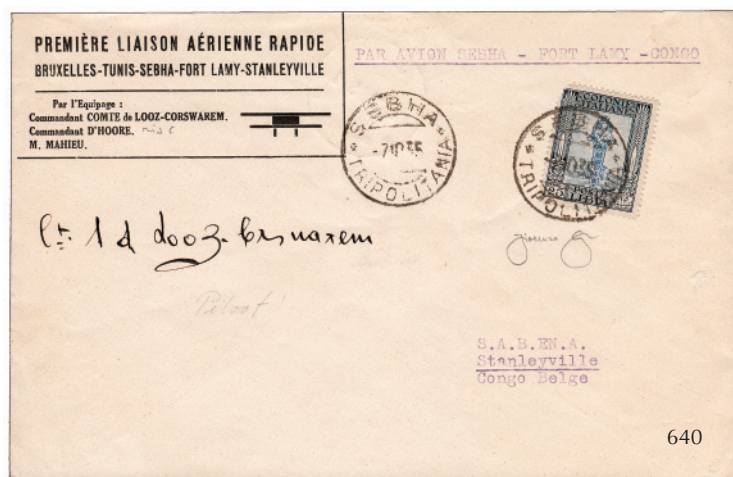 PREMIÈRE LIAISON AÉRIENNE RAPIDE
BRUXELLES-TUNIS-SEBHA-FORT LAMY-STANLEYVILLE
Par l'Equipage :
Commandant COMTE de LOOZ-CORSWAREM.
Commandant D'HOORE.
M. MAHIEU.
PAR AVION SEBHA - FORT LAMY -CONGO
SEBHA
-7.10.35
* TRIPOLITANIA *
SEBHA
* TRIPOLITANIA *
LIBIA
Ct. 1 d Looz-Corswarem
Piloot !
S.A.B.EN.A.
Stanleyville
Congo Belge
640